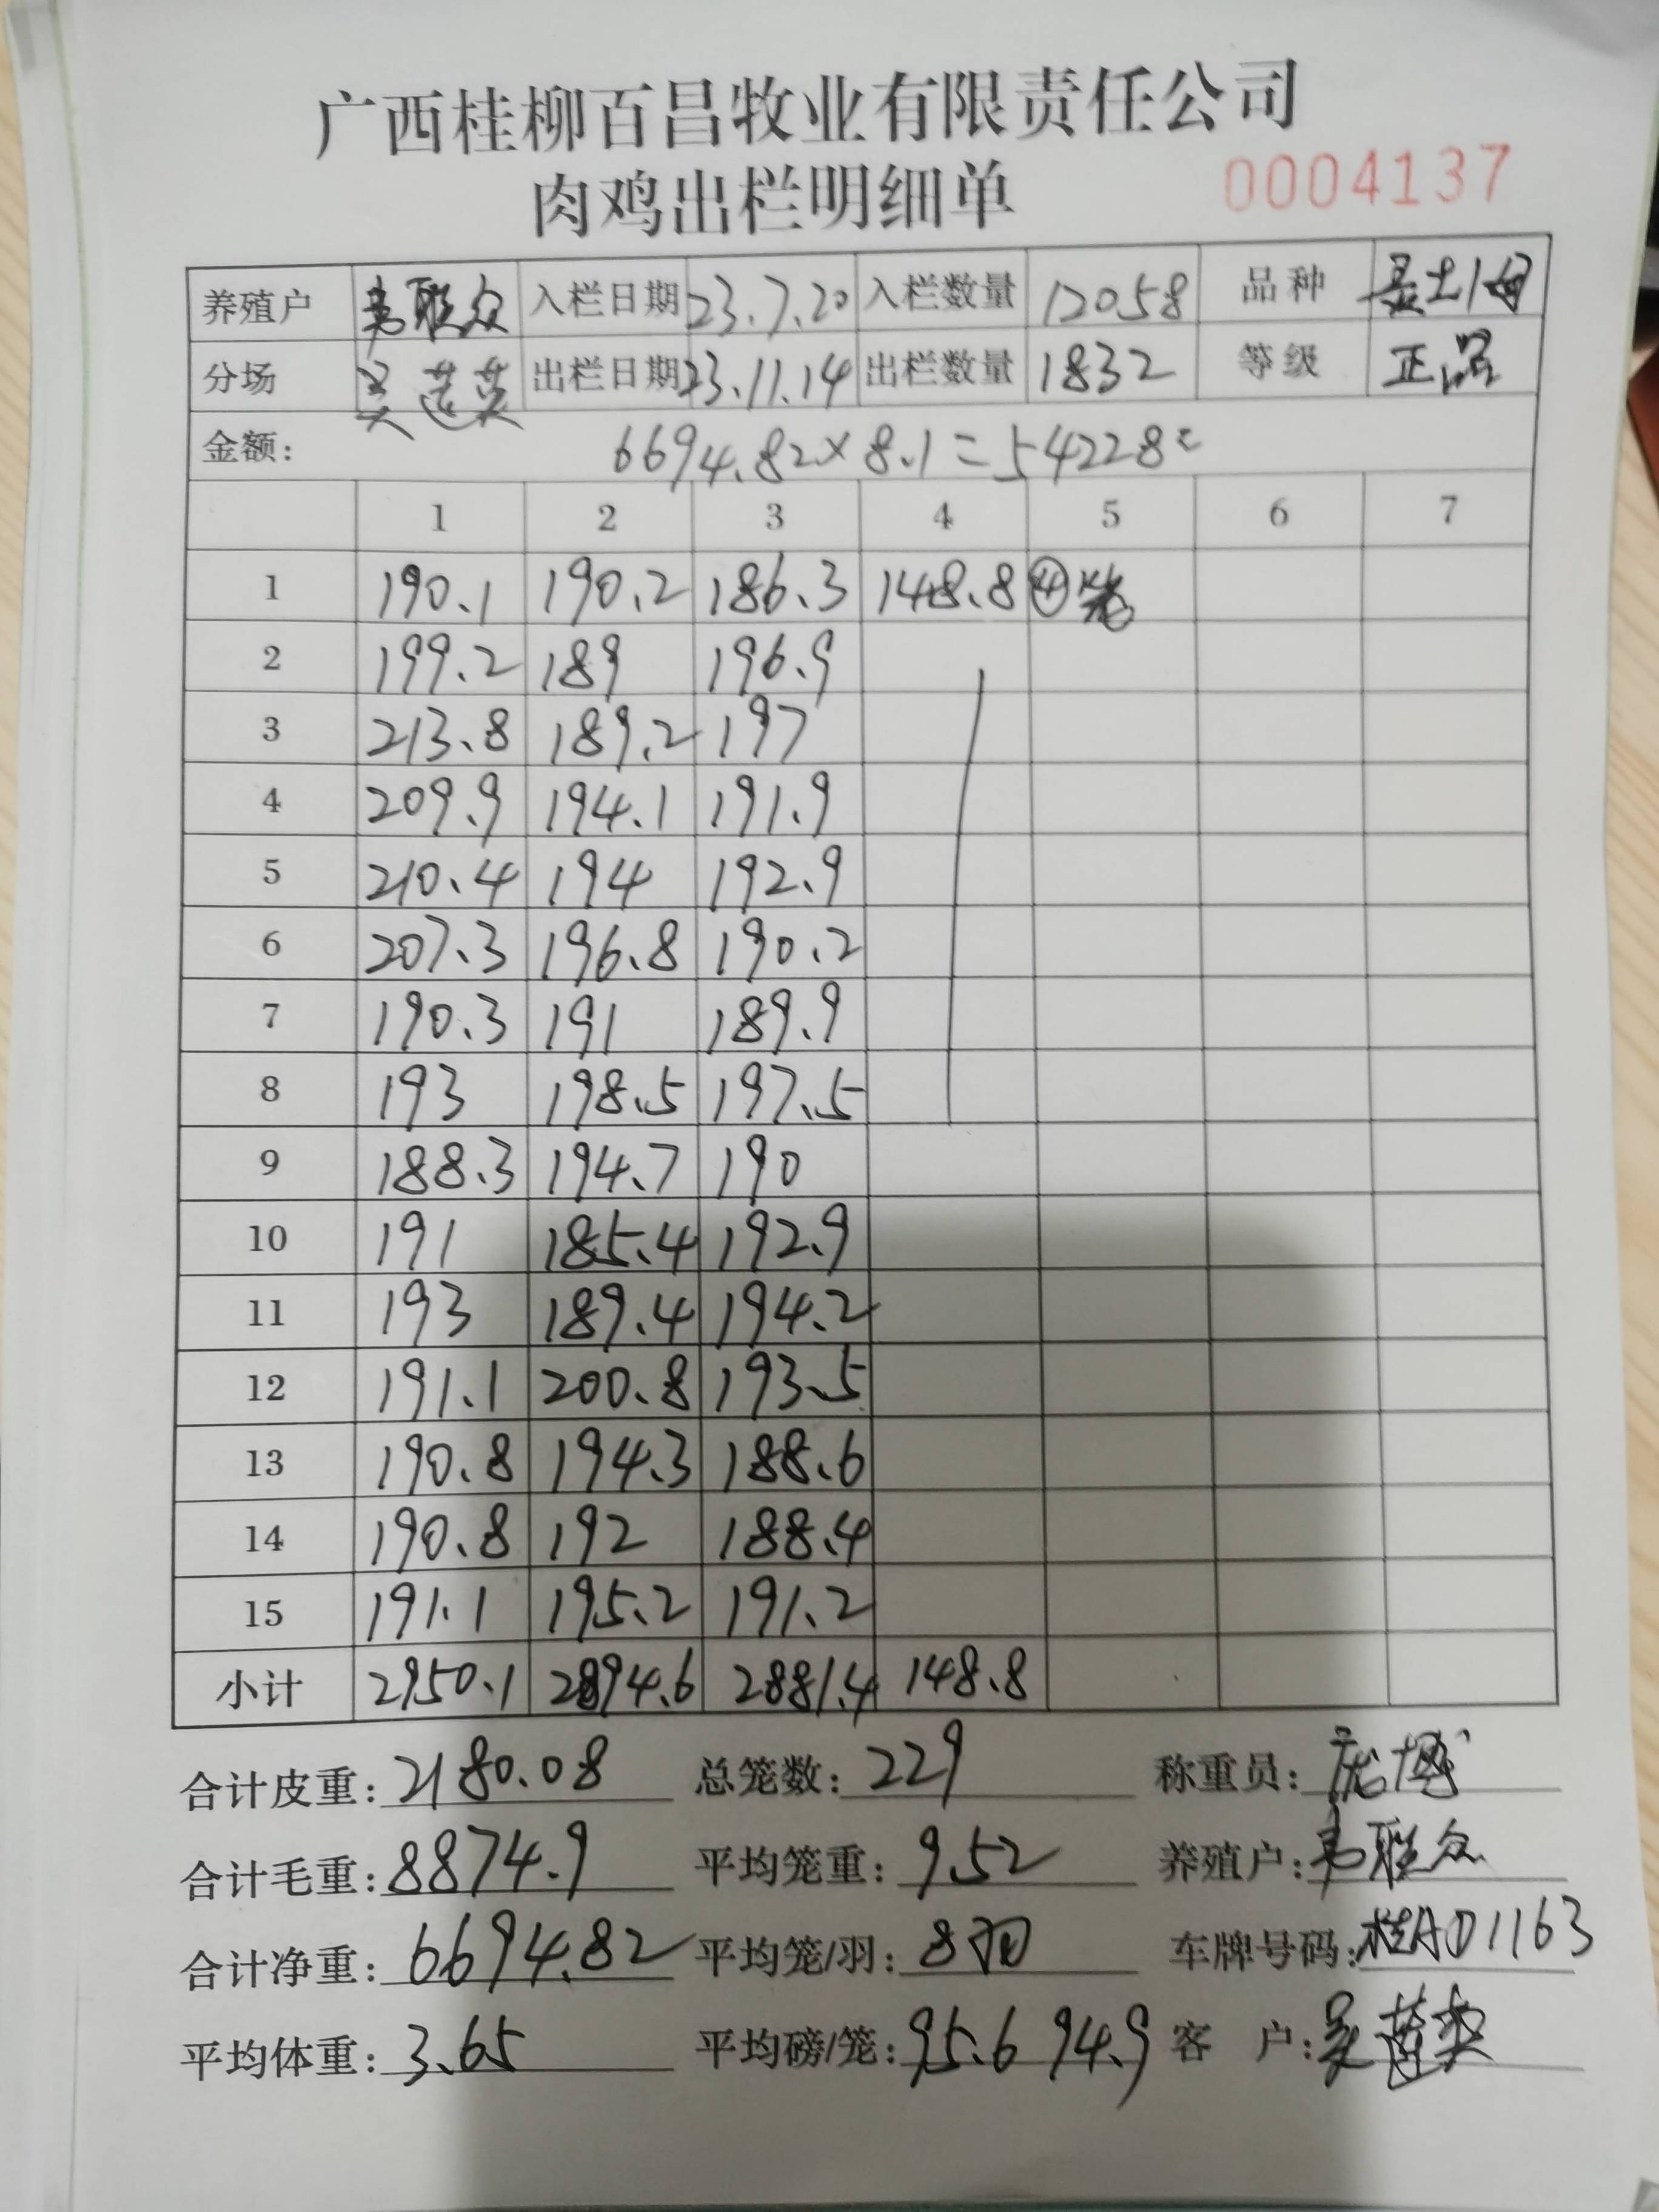 广西桂柳百昌牧业有限责任公司
肉鸡出栏明细单 0004137
养殖户 韦联众 入栏日期 23.7.20 入栏数量 12058 品种
分场 出栏日期 23.11.14 出栏数量 1832 等级 正品
金额: 6694.82×8.1=54228
1 2 3 4 5 6 7
1 190.1 190.2 186.3 148.8 ④笼
2 199.2 189 196.9
3 213.8 189.2 197
4 209.9 194.1 191.9
5 210.4 194 192.9
6 207.3 196.8 190.2
7 190.3 191 189.9
8 193 198.5 197.5
9 188.3 194.7 190
10 191 185.4 192.9
11 193 189.4 194.2
12 191.1 200.8 193.5
13 190.8 194.3 188.6
14 190.8 192 188.4
15 191.1 195.2 191.2
小计 2950.1 2894.6 2881.4 148.8
合计皮重: 2180.08 总笼数: 229 称重员:
合计毛重: 8874.9 平均笼重: 9.52 养殖户: 韦联众
合计净重: 6694.82 平均笼/羽: 8羽 车牌号码: 桂AD1163
平均体重: 3.65 平均磅/笼: 95.6 94.9 客 户: